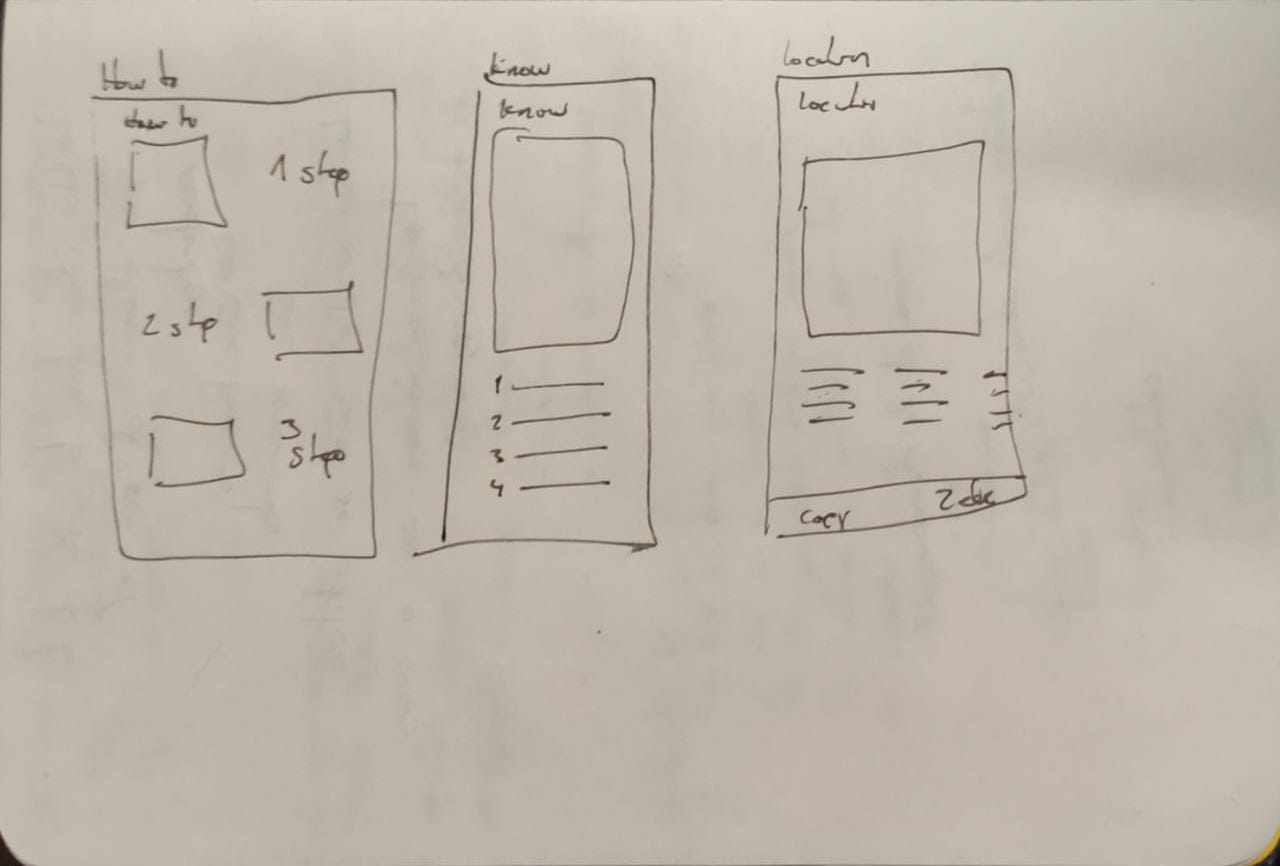 How to
How to
1 step
2 step
3
step
Know
Know
1
2
3
4
location
location
copy